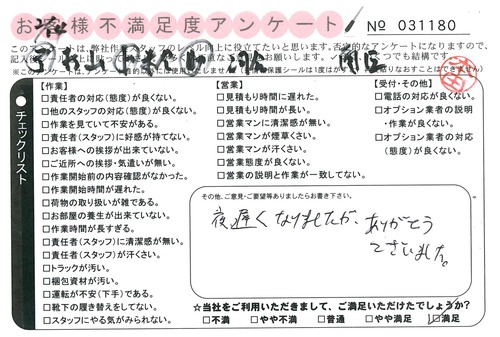 お客様不満足度アンケート
№ 031180
チェックリスト
【作業】
□責任者の対応(態度)が良くない。
□他のスタッフの対応(態度)が良くない。
□作業を見ていて不安がある。
□責任者(スタッフ)に好感が持てない。
□お客様への挨拶が出来ていない。
□ご近所への挨拶・気遣いが無い。
□作業開始前の内容確認がなかった。
□作業開始時間が遅れた。
□荷物の取り扱いが雑である。
□お部屋の養生が出来ていない。
□作業時間が長すぎる。
□責任者(スタッフ)に清潔感が無い。
□責任者(スタッフ)が汗くさい。
□トラックが汚い。
□梱包資材が汚い。
□運転が不安(下手)である。
□靴下の履き替えをしてない。
□スタッフにやる気がみられない。
【営業】
□見積もり時間に遅れた。
□見積もり時間が長い。
□営業マンに清潔感が無い。
□営業マンが煙草くさい。
□営業マンが汗くさい。
□営業態度が良くない。
□営業の説明と作業が一致してない。
【受付・その他】
□電話の対応が良くない。
□オプション業者の説明
・作業が良くない。
□オプション業者の対応
(態度)が良くない。
その他、ご意見・ご要望等ありましたらお書き下さい。
夜遅くなりましたが、ありがとう
ございました。
☆当社をご利用いただきまして、ご満足いただけたでしょうか?
□不満 □やや不満 □普通 □やや満足 □満足